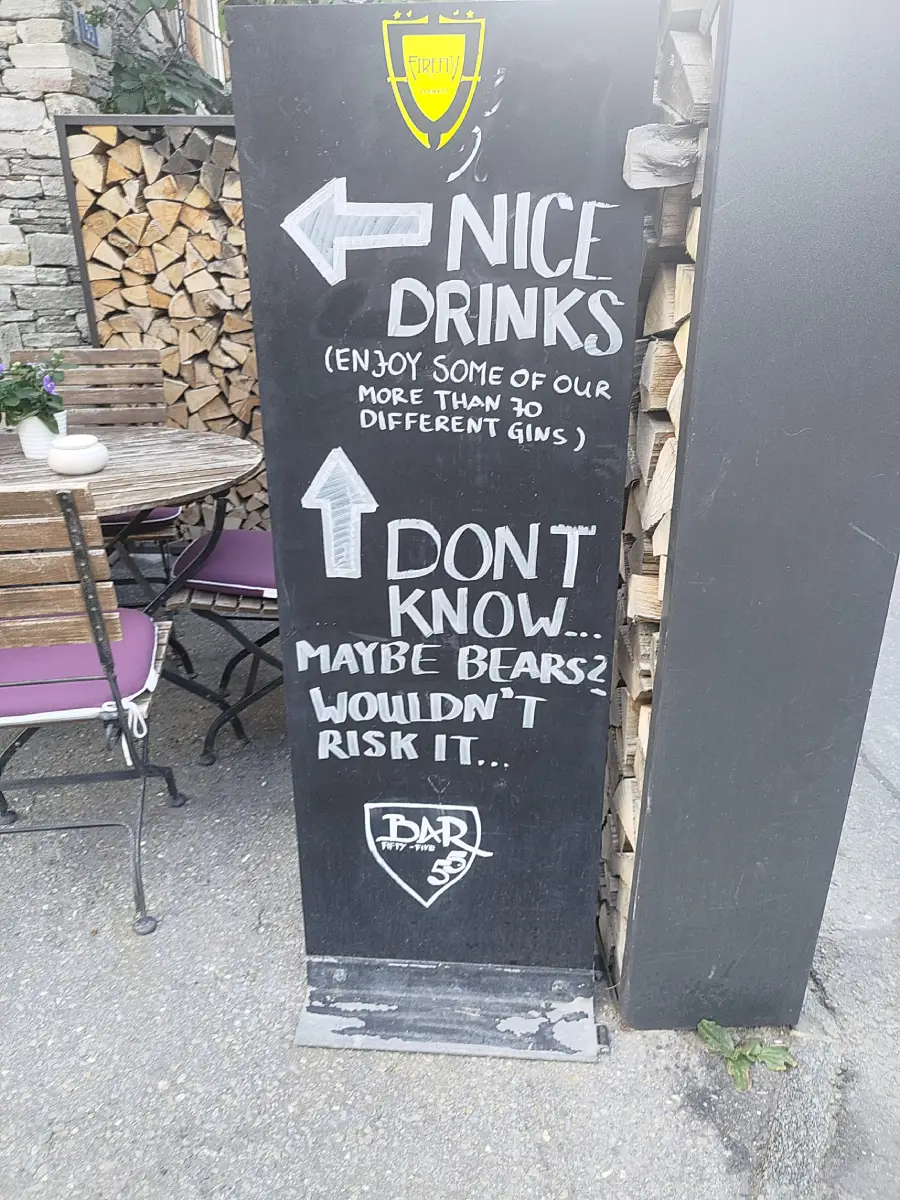 FIREFLY
NICE
DRINKS
(ENJOY SOME OF OUR
MORE THAN 70
DIFFERENT GINS)
DONT
KNOW...
MAYBE BEARS?
WOULDN'T
RISK IT...
BAR
FIFTY-FIVE
55